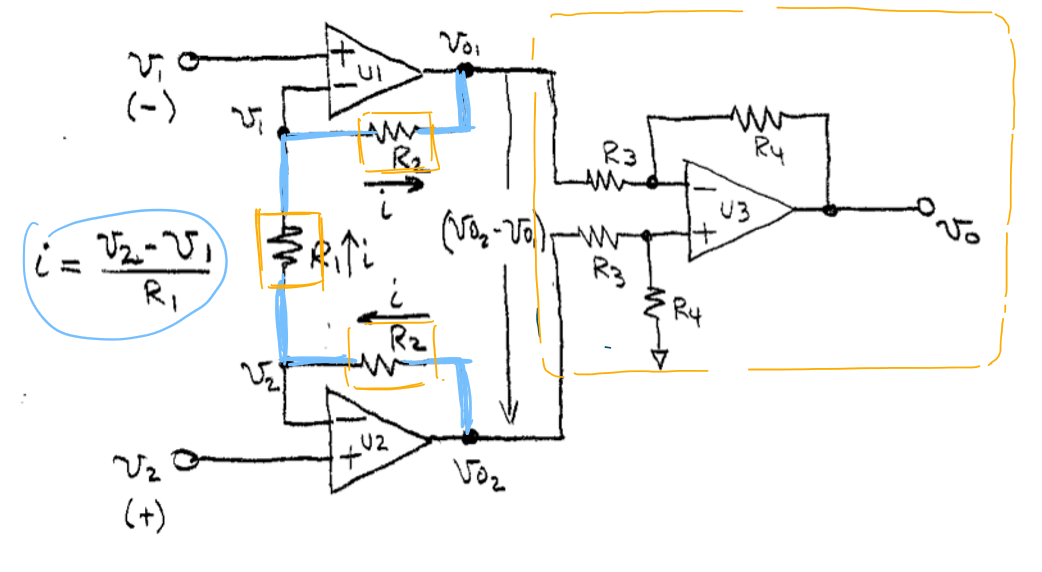 v1
(-)
+
-
U1
vo1
v1
R2
i
i = v2 - v1 / R1
R1 ↑ i
(vo2 - vo1)
i
R2
v2
-
+
U2
vo2
v2
(+)
R3
R4
-
+
U3
R3
R4
vo